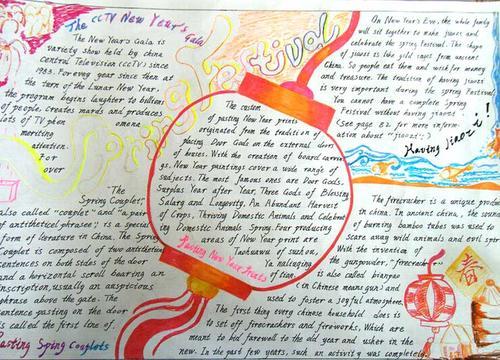 The CCTV New Year's Gala
The New Year's Gala is
variety show held by china
Central Television (CCTV) since
1983. For every year since then at
the turn of the Lunar New Year.
the program begins laughter to billions
of people, creates mards and produces
lots of TV phen omena
meriting
attention.
For
over
Spring Festival
The
Spring Couplet
also called "couplet" and "a pair
of antithetical phrases", is a special
form of lerature in China. The Spring
Couplet is composed of two antithetical
sentences on both sides of the door
and a horizontal scroll bearing an
inscription, usually an auspicious
phrase above the gate. The
sentence pasting on the door
is called the first line of.
Pasting Sping Couplets
The custom
of pasting New Year prints
originated from the tradition of
placing Door Gods on the external doors
of houses. With the creation of board carvin
gs, New Year paintings cover a wide range of
subjects. The most famous ones are Door Gods,
Surplus Year after Year, Three Gods of Blessing
Salary and Longevity, An Abundant Harvest
of Crops, Thriving Domestic Animals and Celebrat
ing Domestic Animals Spring. Four producing
areas of New Year print are
Taohuawu of suzhou,
Pasting New Year Prints
On New Year's Eve, the whole family
will sit together to make jiaozi and
celebrate the spring Festival. The shape
of jiaozi is like gold ingot from ancient
China. So people eat them and wish for money
and treasure. The tradition of having jiaozi
is very important during the spring Festival
You cannot have a complete Spring
Festival without having jiaozi.
(See page 21 for more inform-
ation about "jiaozi";)
Having Jiaozi!
The firecracker is a unique produc
in china. In ancient china, the sound
of burning bamboo tubes was used to
scare away wild animals and evil spi
With the invention of
the gunpowder, "firecracker"
is also called bianpao
(in Chinese means gun) and
used to foster a joyful atmosphere.
The first thing every Chinese household does is
to set off firecrackers and fireworks, Which are
meant to bid farewell to the old year and usher in the
new. In the past few years, such an activity was completely
春